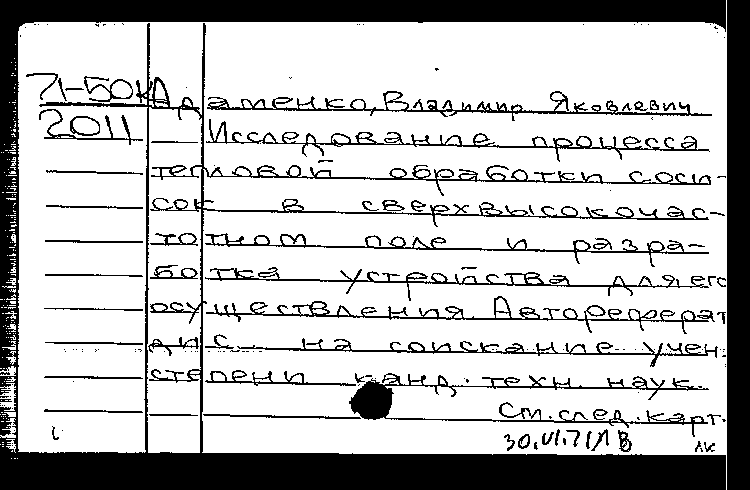 71-50к Адаменко, Владимир Яковлевич
2011 Исследование процесса
тепловой обработки соси-
сок в сверхвысокочас-
тотном поле и разра-
ботка устройства для его
осуществления. Автореферат
дис. на соискание учен.
степени канд. техн. наук.
См. след. карт.
30.VI.71 В